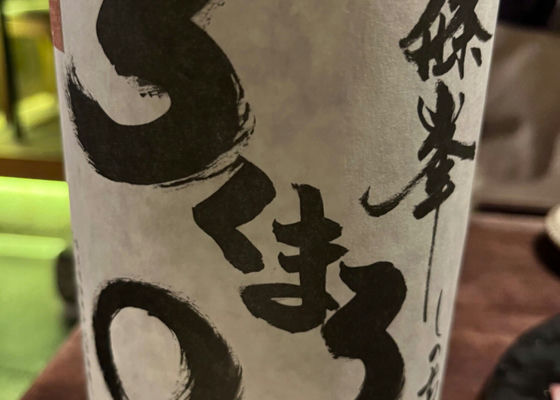 篠峯
しの
ろくまる